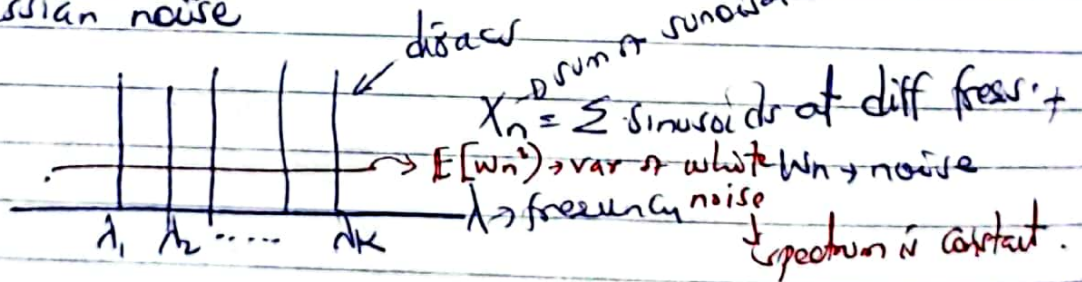 ssian noise
diracs
sum of
X_n = Σ sinusoids at diff freqs. +
→ E[Wn²) → var of white Wn → noise
noise
λ → frequency
spectrum is constant.
λ₁ λ₂ ..... λK